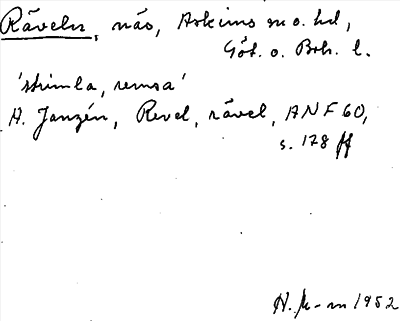 Räveln, näs, Askims sn o. hd,
Göt. o. Boh. l.
'strimla, remsa'
A. Janzén, Revel, rävel, ANF 60,
s. 178 ff
1952